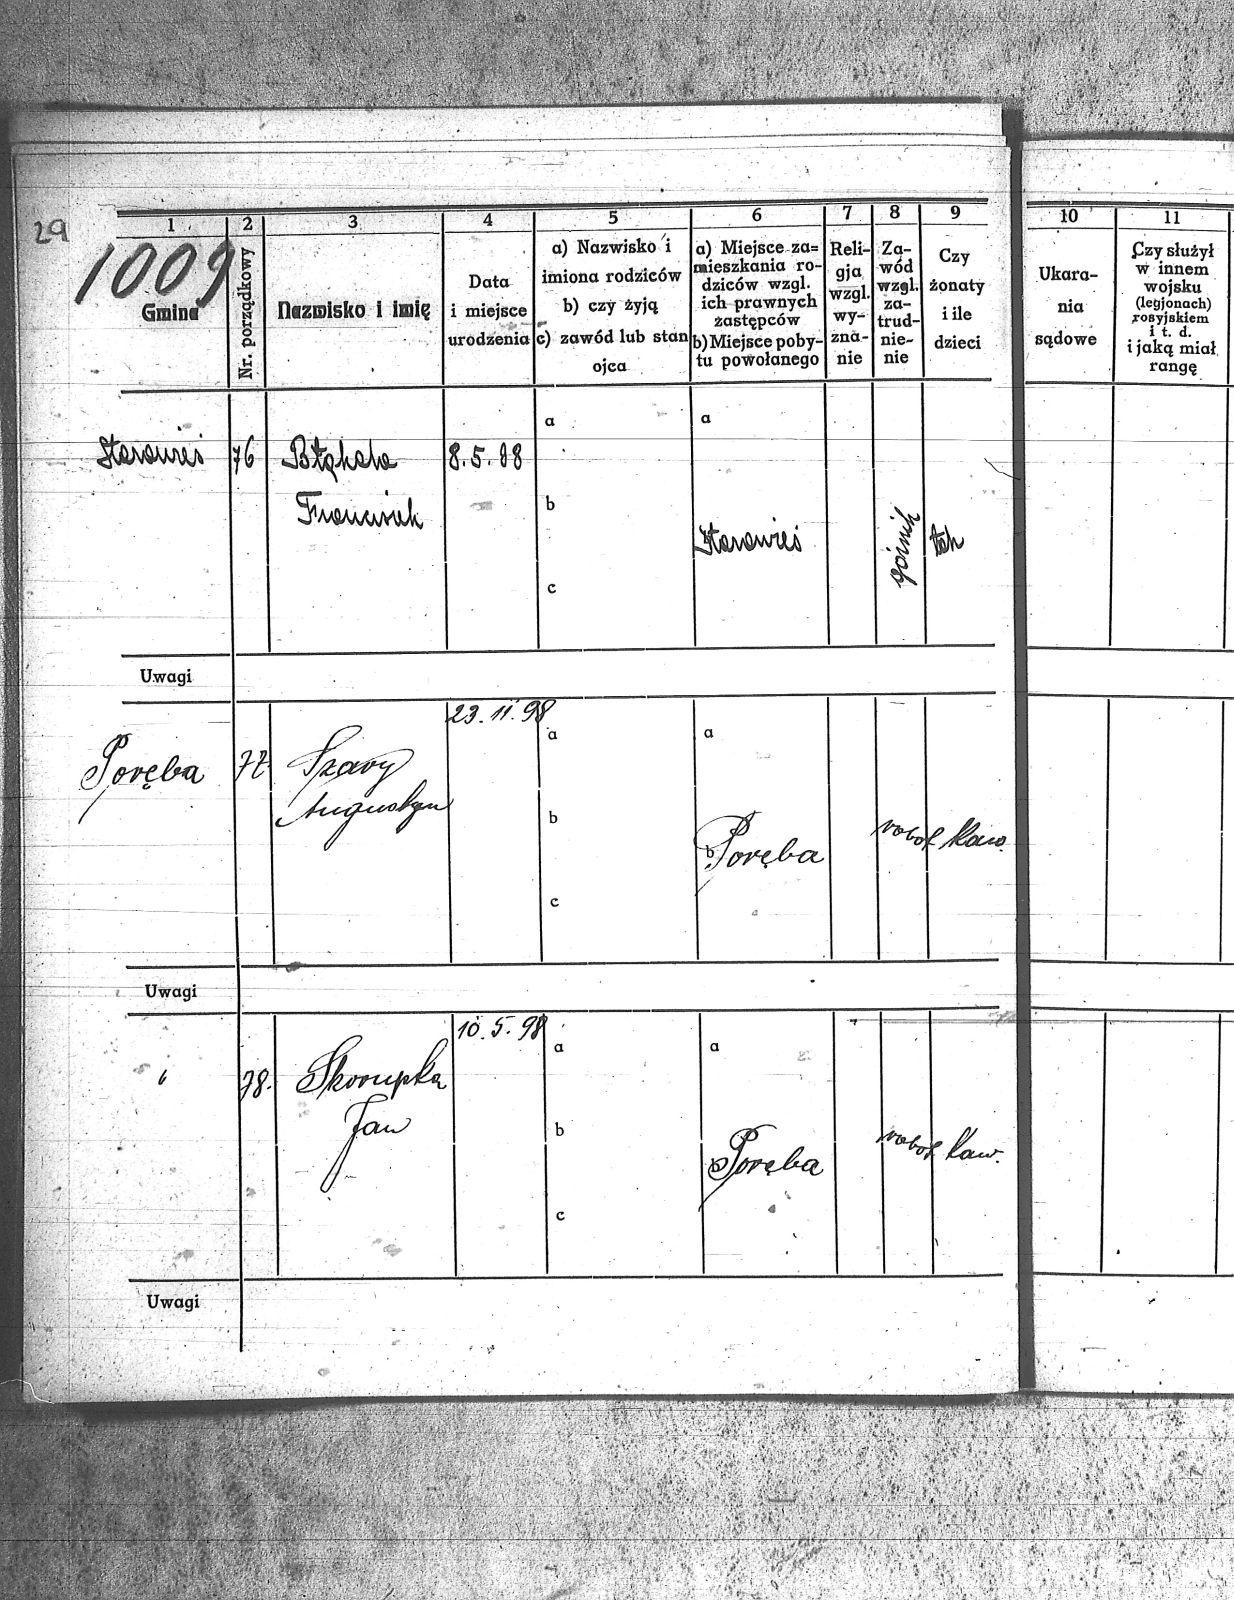 29
1 2 3 4 5 6 7 8 9 10 11
1009
Gmina
Nr. porządkowy
Nazwisko i imię
Data
i miejsce
urodzenia
a) Nazwisko i
imiona rodziców
b) czy żyją
c) zawód lub stan
ojca
a) Miejsce za=
mieszkania ro-
dziców wzgl.
ich prawnych
zastępców
b) Miejsce poby-
tu powołanego
Reli-
gja
wzgl.
wy-
zna-
nie
Za-
wód
wzgl.
za-
trud-
nie-
nie
Czy
żonaty
i ile
dzieci
Ukara-
nia
sądowe
Czy służył
w innem
wojsku
(legjonach)
rosyjskiem
i t. d.
i jaką miał
rangę
a a
Starawieś 76 8.5.88
Franciszek
b
Starawieś górnik tak
c
Uwagi
23. 11. 98
a a
Poręba 77. Szary
Augustyn
b
b Poręba robot. kaw.
c
Uwagi
10. 5. 98
a a
" 78. Skorupka
Jan
b
b Poręba robot. kaw.
c
Uwagi